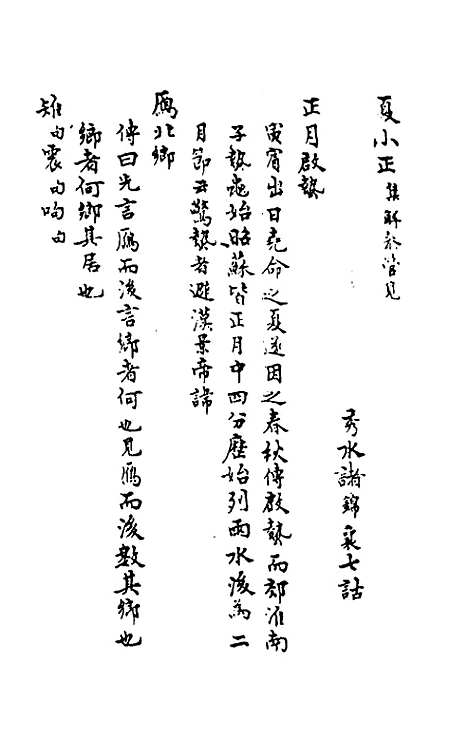 夏小正集解參管見
秀水諸錦襄七詁
正月啟蟄
寅賓出日堯命之夏遂因之春秋傳啟蟄而郊淮南
子蟄蟲始昭蘇皆正月中四分曆始列雨水後為二
月節云驚蟄者避漢景帝諱
鴈北鄉
傳曰先言鴈而後言鄉者何也見鴈而後數其鄉也
鄉者何鄉其居也
雉句震句呴句